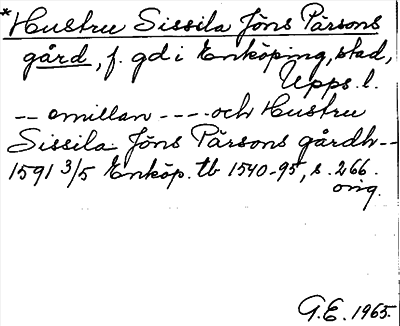 *Hustru Sissila Jöns Pärsons
gård, f. gd i Enköping, stad,
Upps. l.
-- emillan ---- och Hustru
Sissila Jöns Pärsons gårdh--
1591 3/5 Enköp. tb 1540-95, s. 266.
orig.
G.E. 1965.